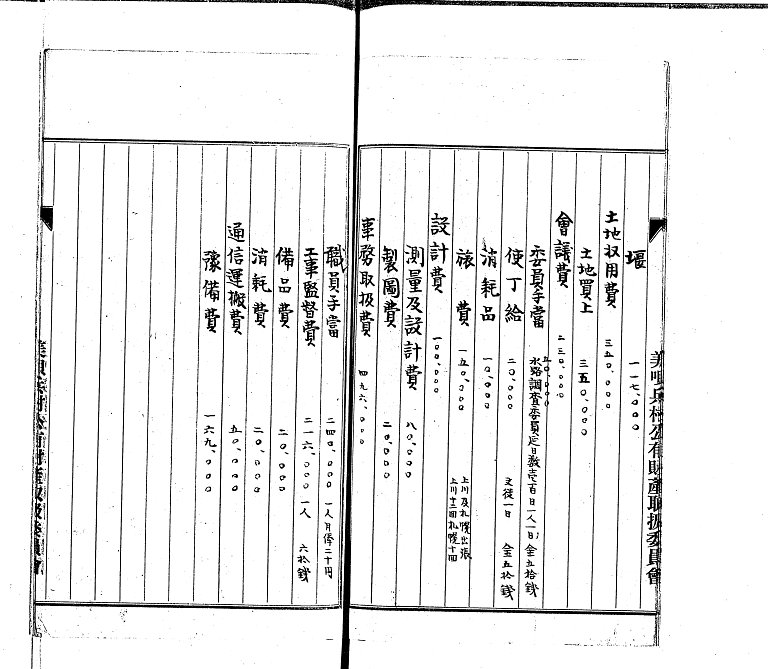 堰 一一七、〇〇〇
土地収用費 三五〇、〇〇〇
土地買上 三五〇、〇〇〇
會議費 二三〇、〇〇〇
委員手當 五〇、〇〇〇 水路調査委員延日数壱百日一人一日金五拾錢
使丁給 二〇、〇〇〇 支従一日 金五拾錢
消耗品 一〇、〇〇〇
旅費 一五〇、〇〇〇 上川及札幌出張 上川十二回札幌十回
設計費 一〇〇、〇〇〇
測量及設計費 八〇、〇〇〇
製圖費 二〇、〇〇〇
事務取扱費 四九六、〇〇〇
美唄兵村公有財産取扱委員會
職員手當 二四〇、〇〇〇 一人月俸二十円
工事監督費 二一六、〇〇〇 一人 六拾錢
備品費 二〇、〇〇〇
消耗費 二〇、〇〇〇
通信運搬費 五〇、〇〇〇
豫備費 一六九、〇〇〇